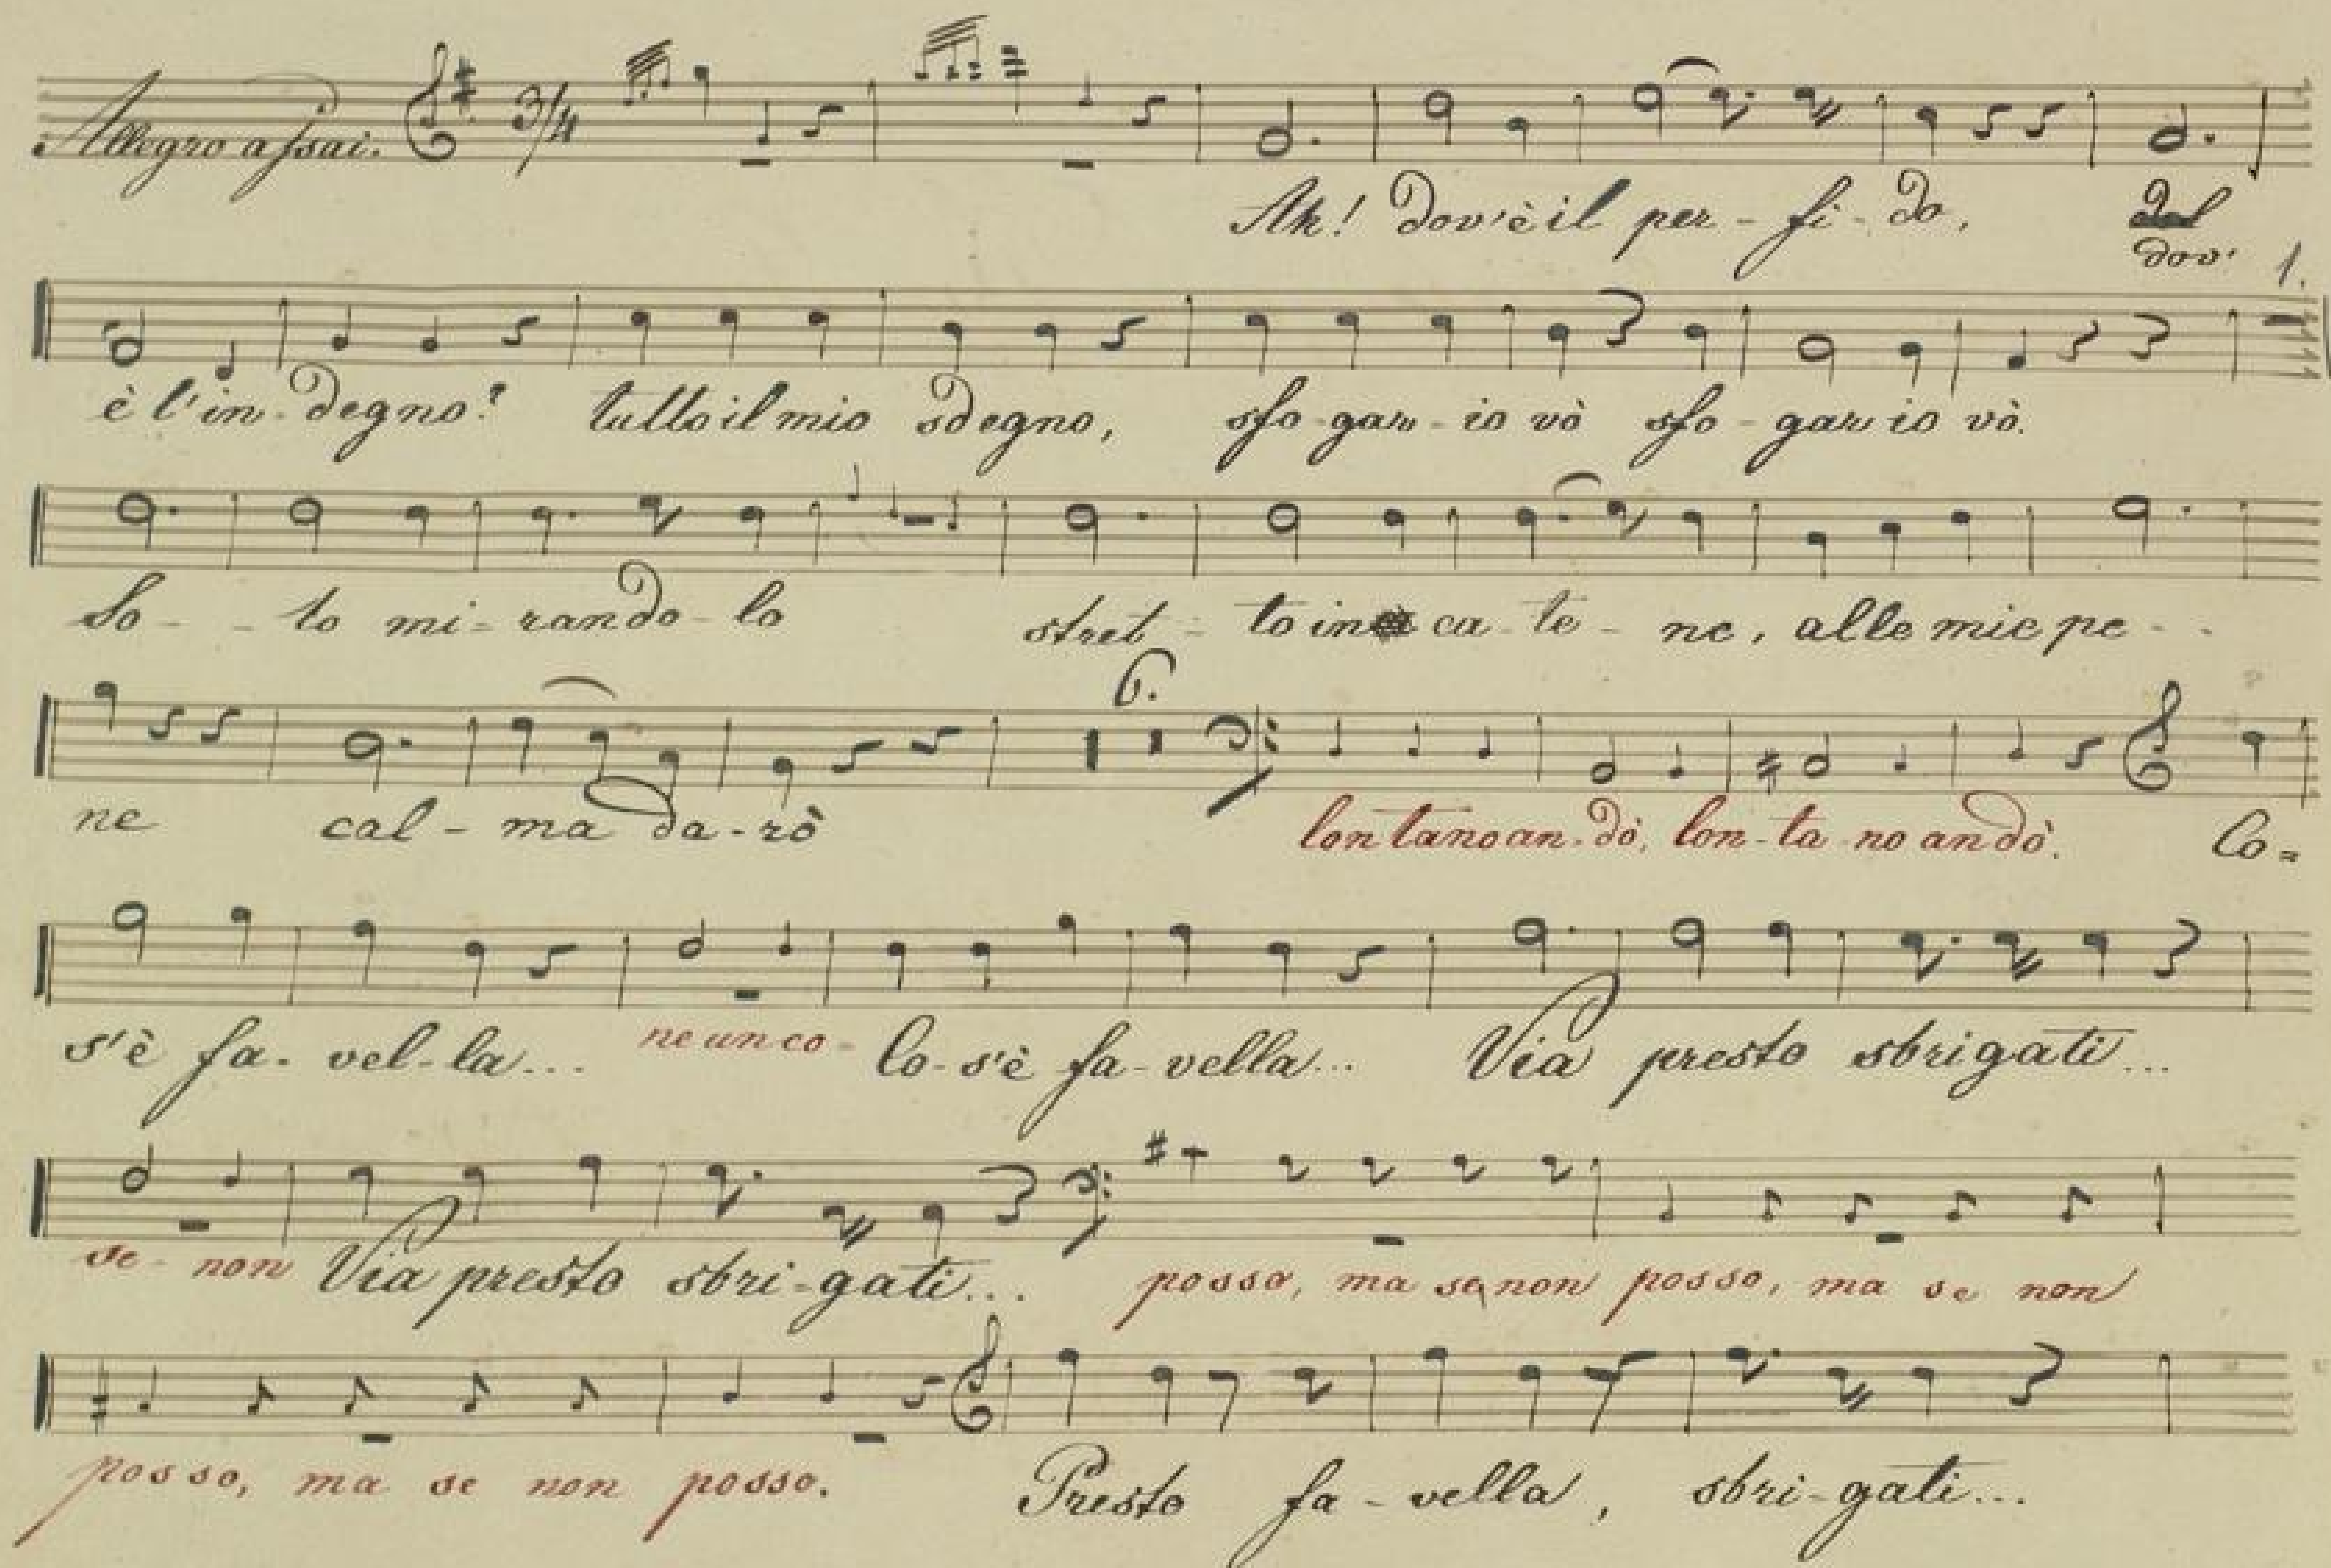 Allegro assai. 3/4
Ah! dov'è il per - fi - do,
dov' 1.
è l'in - degno? tutto il mio sdegno, sfo - gar - io vò sfo - gar io vò.
So - - lo mi - rando - lo stret - to in ca - te - ne, alle mie pe - -
6.
ne cal - ma da - rò lontano an - dò, lon - ta - no andò. Co =
s'è fa - vel - la... ne un co - Co - s'è fa - vella... Via presto sbrigati...
se - non Via presto sbri - gati... posso, ma se non posso, ma se non
posso, ma se non posso. Presto fa - vella, sbri - gati...